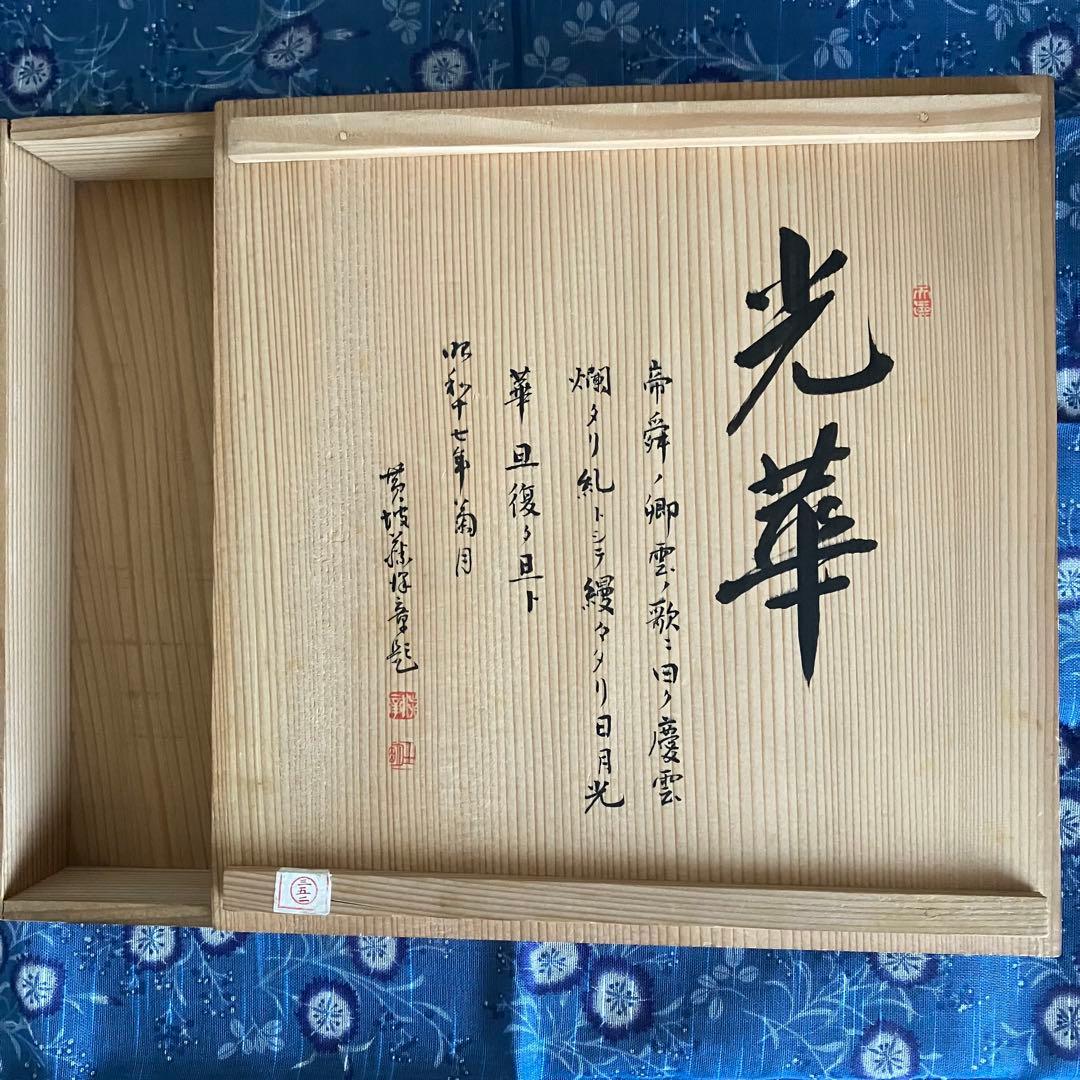 光華
帝舜ノ卿雲ノ歌ニ曰ク慶雲
爛タリ糺トシテ縵々タリ日月光
華旦復タ旦ト
昭和十七年菊月
黄坡藤澤章題
三五二